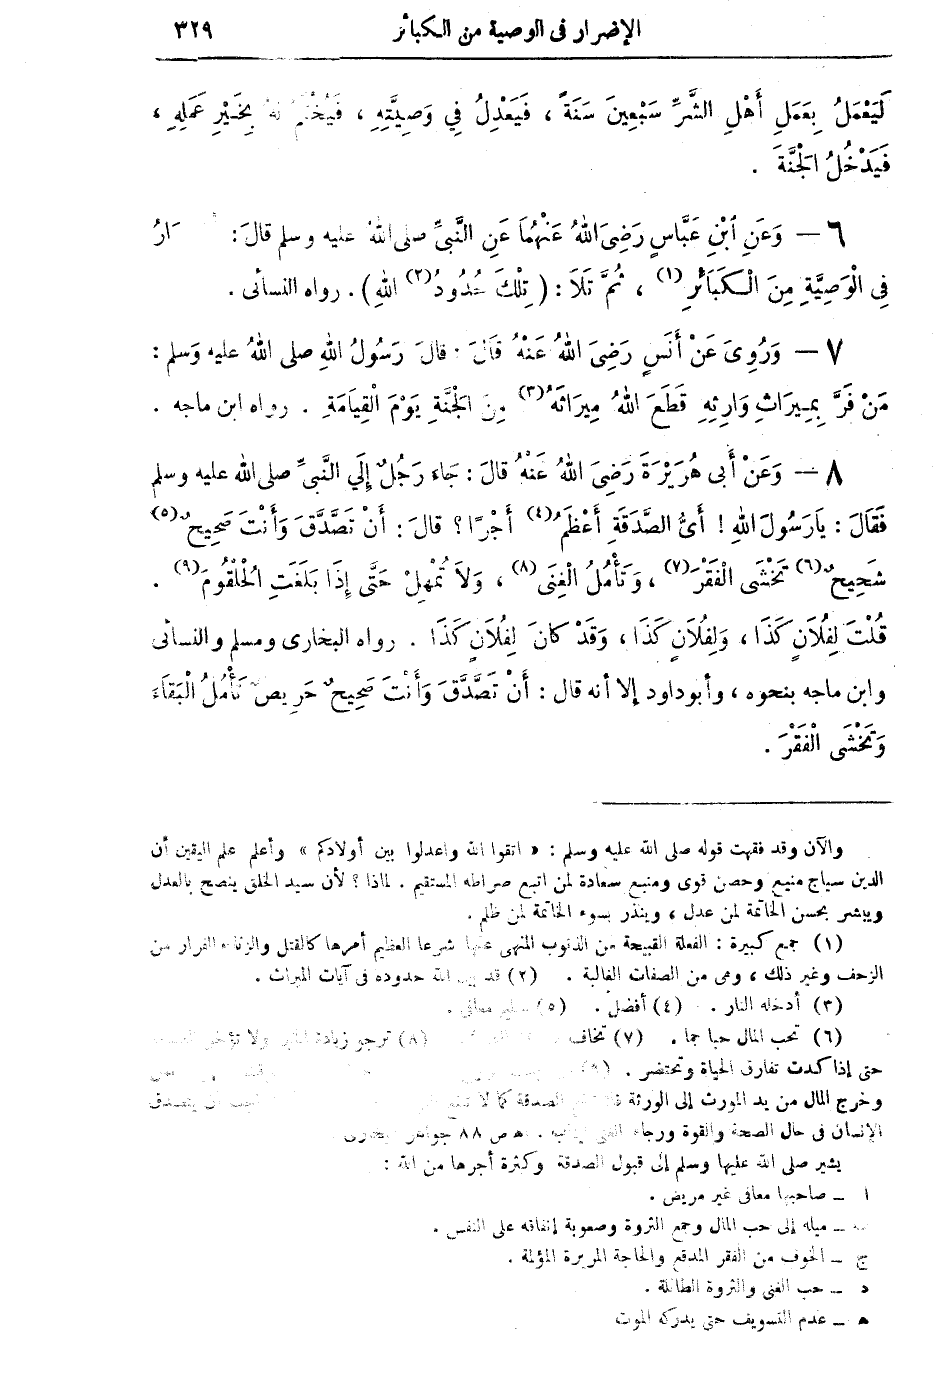 الإضرار في الوصية من الكبائر ٣٢٩
لَيَعْمَلُ بِعَمَلِ أَهْلِ الشَّرِّ سَبْعِينَ سَنَةً ، فَيَعْدِلُ فِي وَصِيَّتِهِ ، فَيُخْتَمُ لَهُ بِخَيْرِ عَمَلِهِ ،
فَيَدْخُلُ الْجَنَّةَ .
٦ — وَعَنِ ابْنِ عَبَّاسٍ رَضِيَ اللهُ عَنْهُمَا عَنِ النَّبِيِّ صلى اللهُ عليه وسلم قَالَ :
فِي الْوَصِيَّةِ مِنَ الْكَبَائِرِ (١) ، ثُمَّ تَلَا : ( تِلْكَ حُدُودُ (٢) اللهِ ) . رواه النسائى .
٧ — وَرُوِىَ عَنْ أَنَسٍ رَضِىَ اللهُ عَنْهُ قَالَ : قَالَ رَسُولُ اللهِ صلى اللهُ عليه وَسلم :
مَنْ فَرَّ بِمِيرَاثِ وَارِثِهِ قَطَعَ اللهُ مِيرَاثَهُ (٣) مِنَ الْجَنَّةِ يَوْمَ الْقِيَامَةِ . رواه ابن ماجه .
٨ — وَعَنْ أَبى هُرَيْرَةَ رَضِىَ اللهُ عَنْهُ قَالَ : جَاءَ رَجُلٌ إِلَي النَّبىِّ صلى الله عليه وسلم
فَقَالَ : يَارَسُولَ اللهِ ! أَىُّ الصَّدَقَةِ أَعْظَمُ (٤) أَجْرًا ؟ قَالَ : أَنْ تَصَّدَّقَ وَأَنْتَ صَحِيحٌ (٥)
شَحِيحٌ (٦) تَخْشَى الْفَقْرَ (٧) ، وَتَأْمُلُ الْغِنَى (٨) ، وَلَا تُمْهِلْ حَتَّى إِذَا بَلَغَتِ الْحُلْقُومَ (٩) .
قُلْتَ لِفُلَانٍ كَذَا ، وَلِفُلَانٍ كَذَا ، وَقَدْ كَانَ لِفُلَانٍ كَذَا . رواه البخارى ومسلم والنسائى
وابن ماجه بنحوه ، وأبوداود إلا أنه قال : أَنْ تَصَّدَّقَ وَأَنْتَ صَحِيحٌ حَرِيصٌ تَأْمُلُ الْبَقَاءَ
وَتَخْشَى الْفَقْرَ .
والآن وقد فقهت قوله صلى الله عليه وسلم : « اتقوا الله واعدلوا بين أولادكم » وأعلم علم اليقين أن
الدين سياج منيع وحصن قوى ومنبع سعادة لمن اتبع صراطه المستقيم . لماذا ؟ لأن سيد الخلق ينصح بالعدل
ويبشر بحسن الخاتمة لمن عدل ، وينذر بسوء الخاتمة لمن ظلم .
(١) جمع كبيرة : الفعلة القبيحة من الذنوب المنهى عنها شرعا العظيم أمرها كالقتل والزناء الفرار من
الزحف وغير ذلك ، وهى من الصفات الغالبة . (٢) قد بين الله حدوده فى آيات الميراث .
(٣) أدخله النار . (٤) أفضل . (٥) سليم معافى .
(٦) تحب المال حبا جما . (٧) تخاف (٨) ترجو زيادة المال ولا تؤخر
حتى إذا كدت تفارق الحياة وتحتضر . (٩)
وخرج المال من يد المورث إلى الورثة الصدقة كما لا تنفع يتصدق
الإنسان فى حال الصحة والقوة ورجاء الغنى . اه ص ٨٨ جواهر البخارى .
يشير صلى الله عليها وسلم إلى قبول الصدقة وكثرة أجرها من الله :
ا ــ صاحبها معافى غير مريض .
ــ ميله إلى حب المال وجمع الثروة وصعوبة إنفاقه على النفس .
ج ــ الخوف من الفقر المدقع والحاجة المريرة المؤلمة .
د ــ حب الغنى والثروة الطائلة .
ه ــ عدم التسويف حتى يدركه الموت